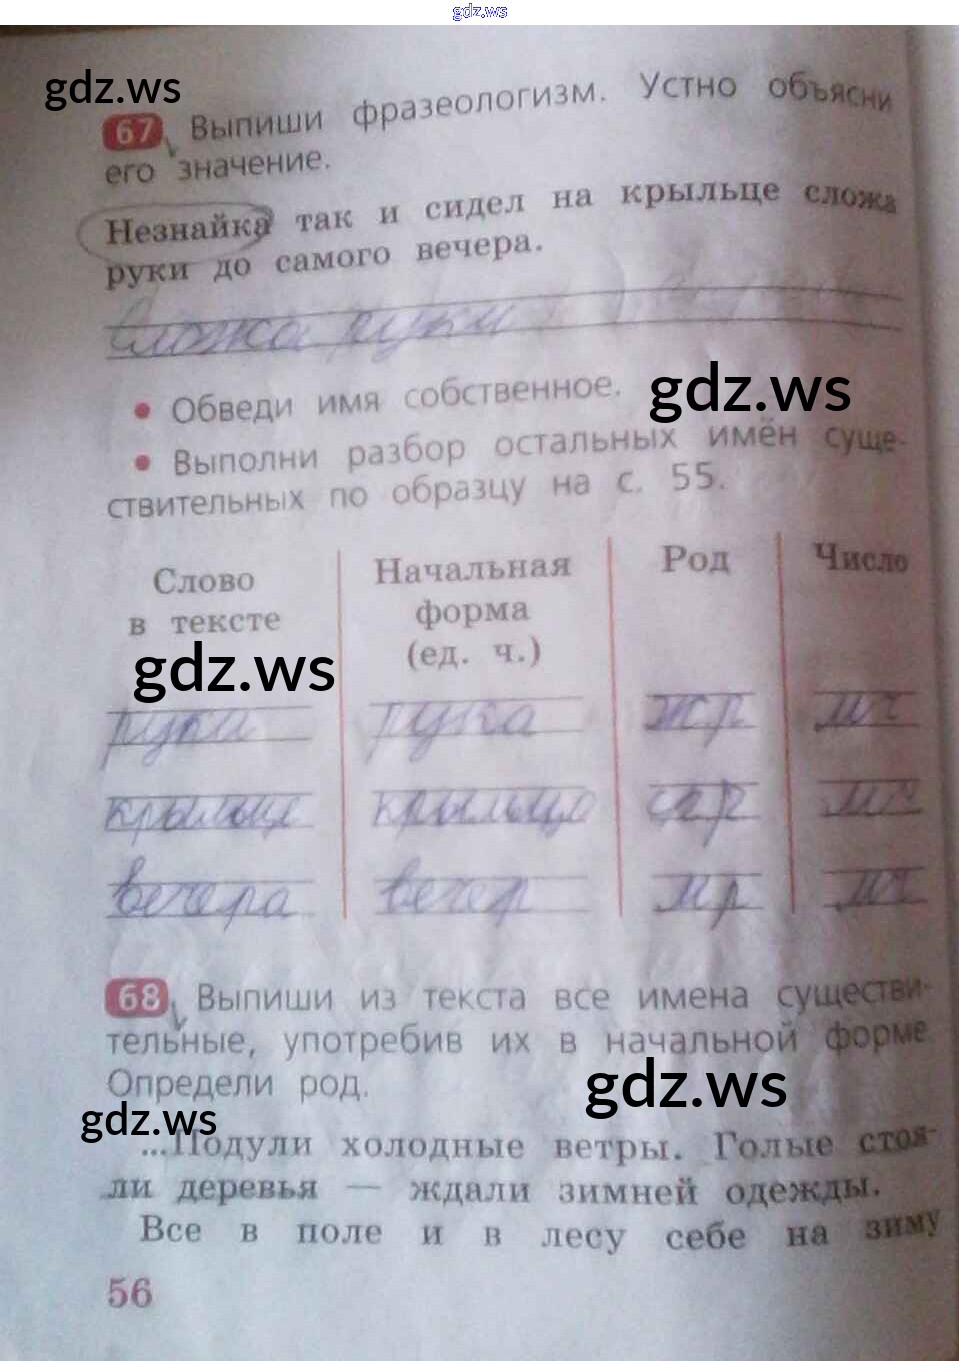 gdz.ws
gdz.ws
67 Выпиши фразеологизм. Устно объясни
его значение.
Незнайка так и сидел на крыльце сложа
руки до самого вечера.
Сложа руки
• Обведи имя собственное.
gdz.ws
• Выполни разбор остальных имён суще-
ствительных по образцу на с. 55.
Слово в тексте Начальная форма (ед. ч.) Род Число
gdz.ws
руки рука жр мч
крыльце крыльцо ср
вечера вечер мр мч
68 Выпиши из текста все имена существи-
тельные, употребив их в начальной форме.
Определи род.
gdz.ws
gdz.ws
...Подули холодные ветры. Голые стоя-
ли деревья — ждали зимней одежды.
Все в поле и в лесу себе на зиму
56